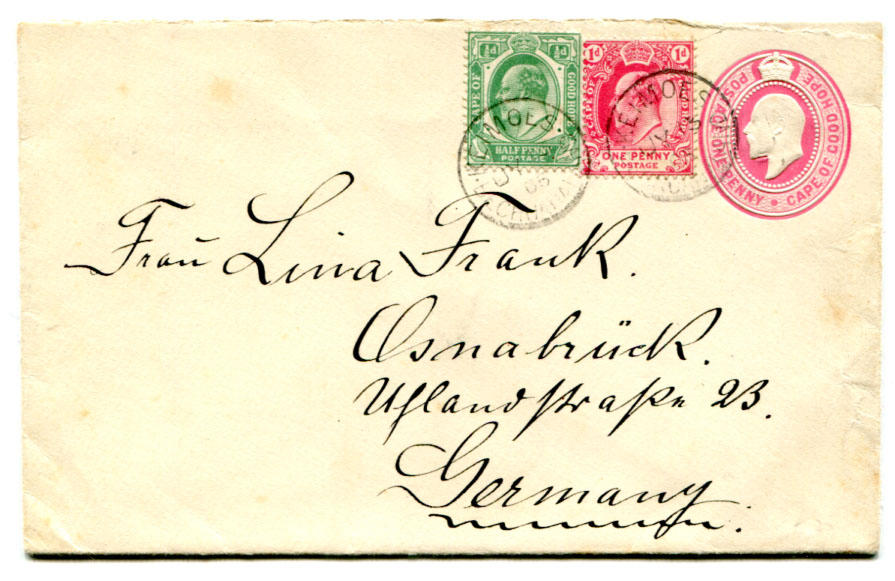 ½d ½d
CAPE OF GOOD HOPE
HALF PENNY
POSTAGE
1d 1d
CAPE OF GOOD HOPE
ONE PENNY
POSTAGE
POSTAGE ONE PENNY • CAPE OF GOOD HOPE
Frau Lina Frank.
Osnabrück.
Uhlandstraße 23.
Germany.